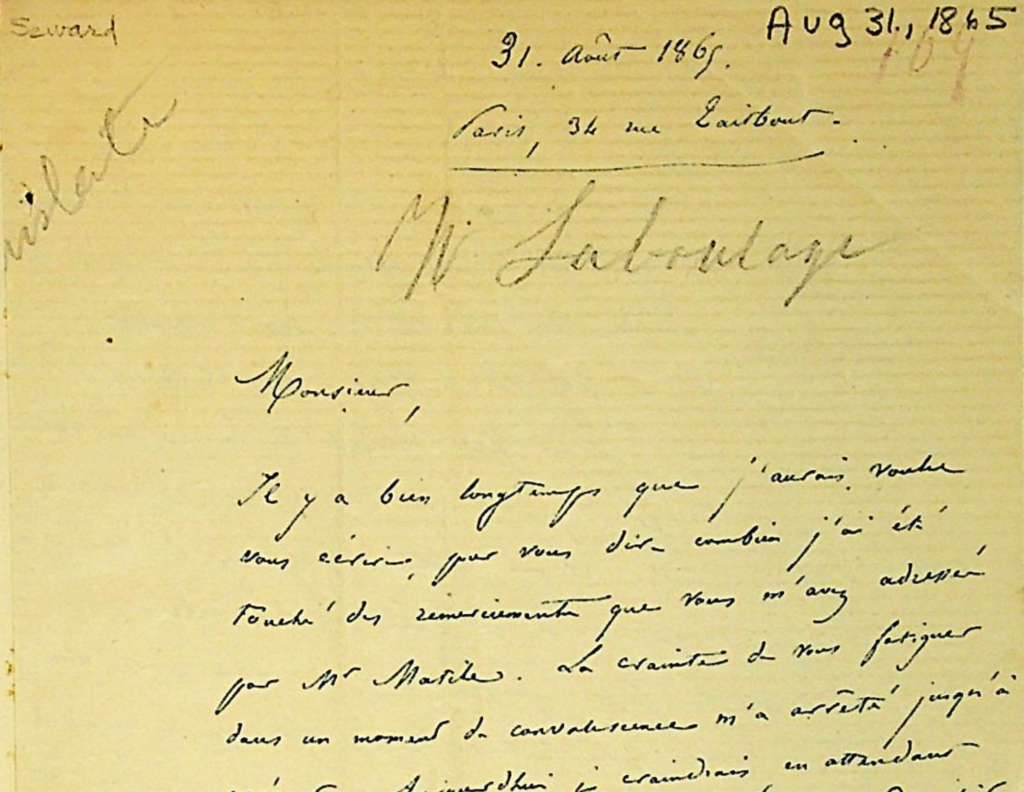 Seward
Aug 31., 1865
31. Août 1865.
Paris, 34 rue Taitbout.
Laboulaye
Monsieur,
Il y a bien longtemps que j'aurais voulu
vous écrire, pour vous dire combien j'ai été
touché des remerciements que vous m'avez adressés
par Mr Matile. La crainte de vous fatiguer
dans un moment de convalescence m'a arrêté jusqu'à
Aujourdhui je craindrais en attendant